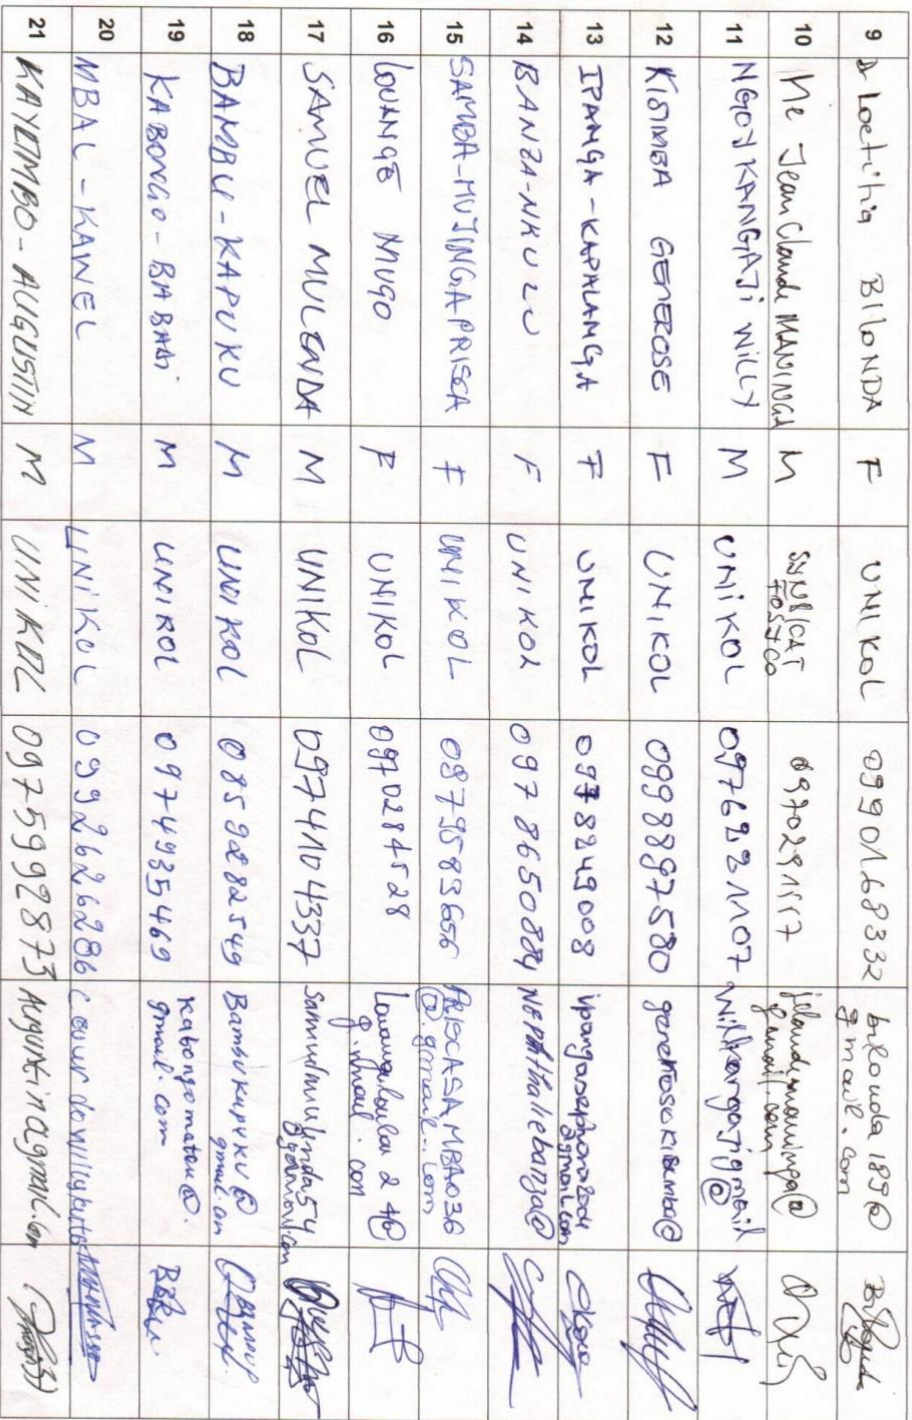 9 D Loetitia BILONDA F UNIKOL 0990168332 bilonda189@
gmail.com
10 Me Jean Claude MANINGA M SYNDICAT
0970291117 jclaudemaninga@
gmail.com
11 NGOY KANGAJI WILLY M UNIKOL 0976921107 Willkangaji gmail
@
12 KISIMBA GENEROSE F UNIKOL 0998897580 generosekisimba@
13 IPANGA-KAPALANGA F UNIKOL 0978849008
@gmail.com
14 BANZA-NKULU F UNIKOL 0978650884 Nephthaliebanza@
15 SAMBA-MUJINGA PRISCA F UNIKOL 0979589656 PRISCASAMBA036
@.gmail.com
16 LOUANGE MUGO F UNIKOL 0970284528
@.gmail.com
17 SAMUEL MULENDA M UNIKOL 0974104337 Samuelmulenda54
@gmail.com
18 BAMBU-KAPUKU M UNIKOL 0859282549 Bambukapuku@
gmail.com
19 KABONGO-BABADI M UNIKOL 0974935469 Kabongomatau@.
gmail.com
20 MBAL-KAWEL M UNIKOL 0992626286
21 KAYEMBO-AUGUSTIN M UNIKOL 0975992873 Augustin@gmail.com